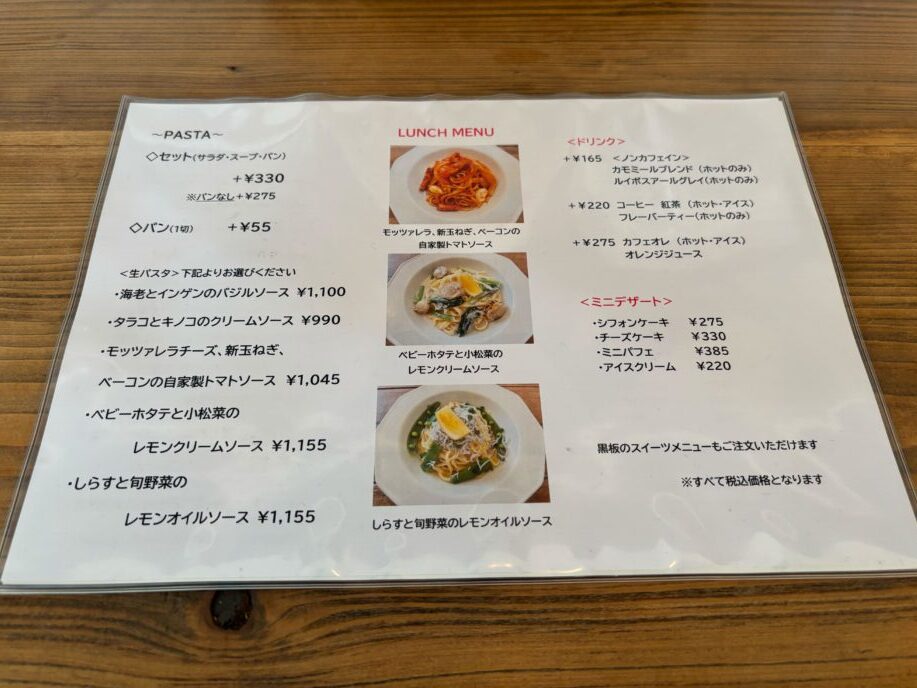 ～PASTA～
◇セット(サラダ・スープ・パン)
+¥330
※パンなし+¥275
◇パン(1切) +¥55
<生パスタ>下記よりお選びください
・海老とインゲンのバジルソース ¥1,100
・タラコとキノコのクリームソース ¥990
・モッツァレラチーズ、新玉ねぎ、
ベーコンの自家製トマトソース ¥1,045
・ベビーホタテと小松菜の
レモンクリームソース ¥1,155
・しらすと旬野菜の
レモンオイルソース ¥1,155
LUNCH MENU
モッツァレラ、新玉ねぎ、ベーコンの
自家製トマトソース
ベビーホタテと小松菜の
レモンクリームソース
しらすと旬野菜のレモンオイルソース
<ドリンク>
+¥165 <ノンカフェイン>
カモミールブレンド (ホットのみ)
ルイボスアールグレイ(ホットのみ)
+¥220 コーヒー 紅茶 (ホット・アイス)
フレーバーティー(ホットのみ)
+¥275 カフェオレ (ホット・アイス)
オレンジジュース
<ミニデザート>
・シフォンケーキ ¥275
・チーズケーキ ¥330
・ミニパフェ ¥385
・アイスクリーム ¥220
黒板のスイーツメニューもご注文いただけます
※すべて税込価格となります